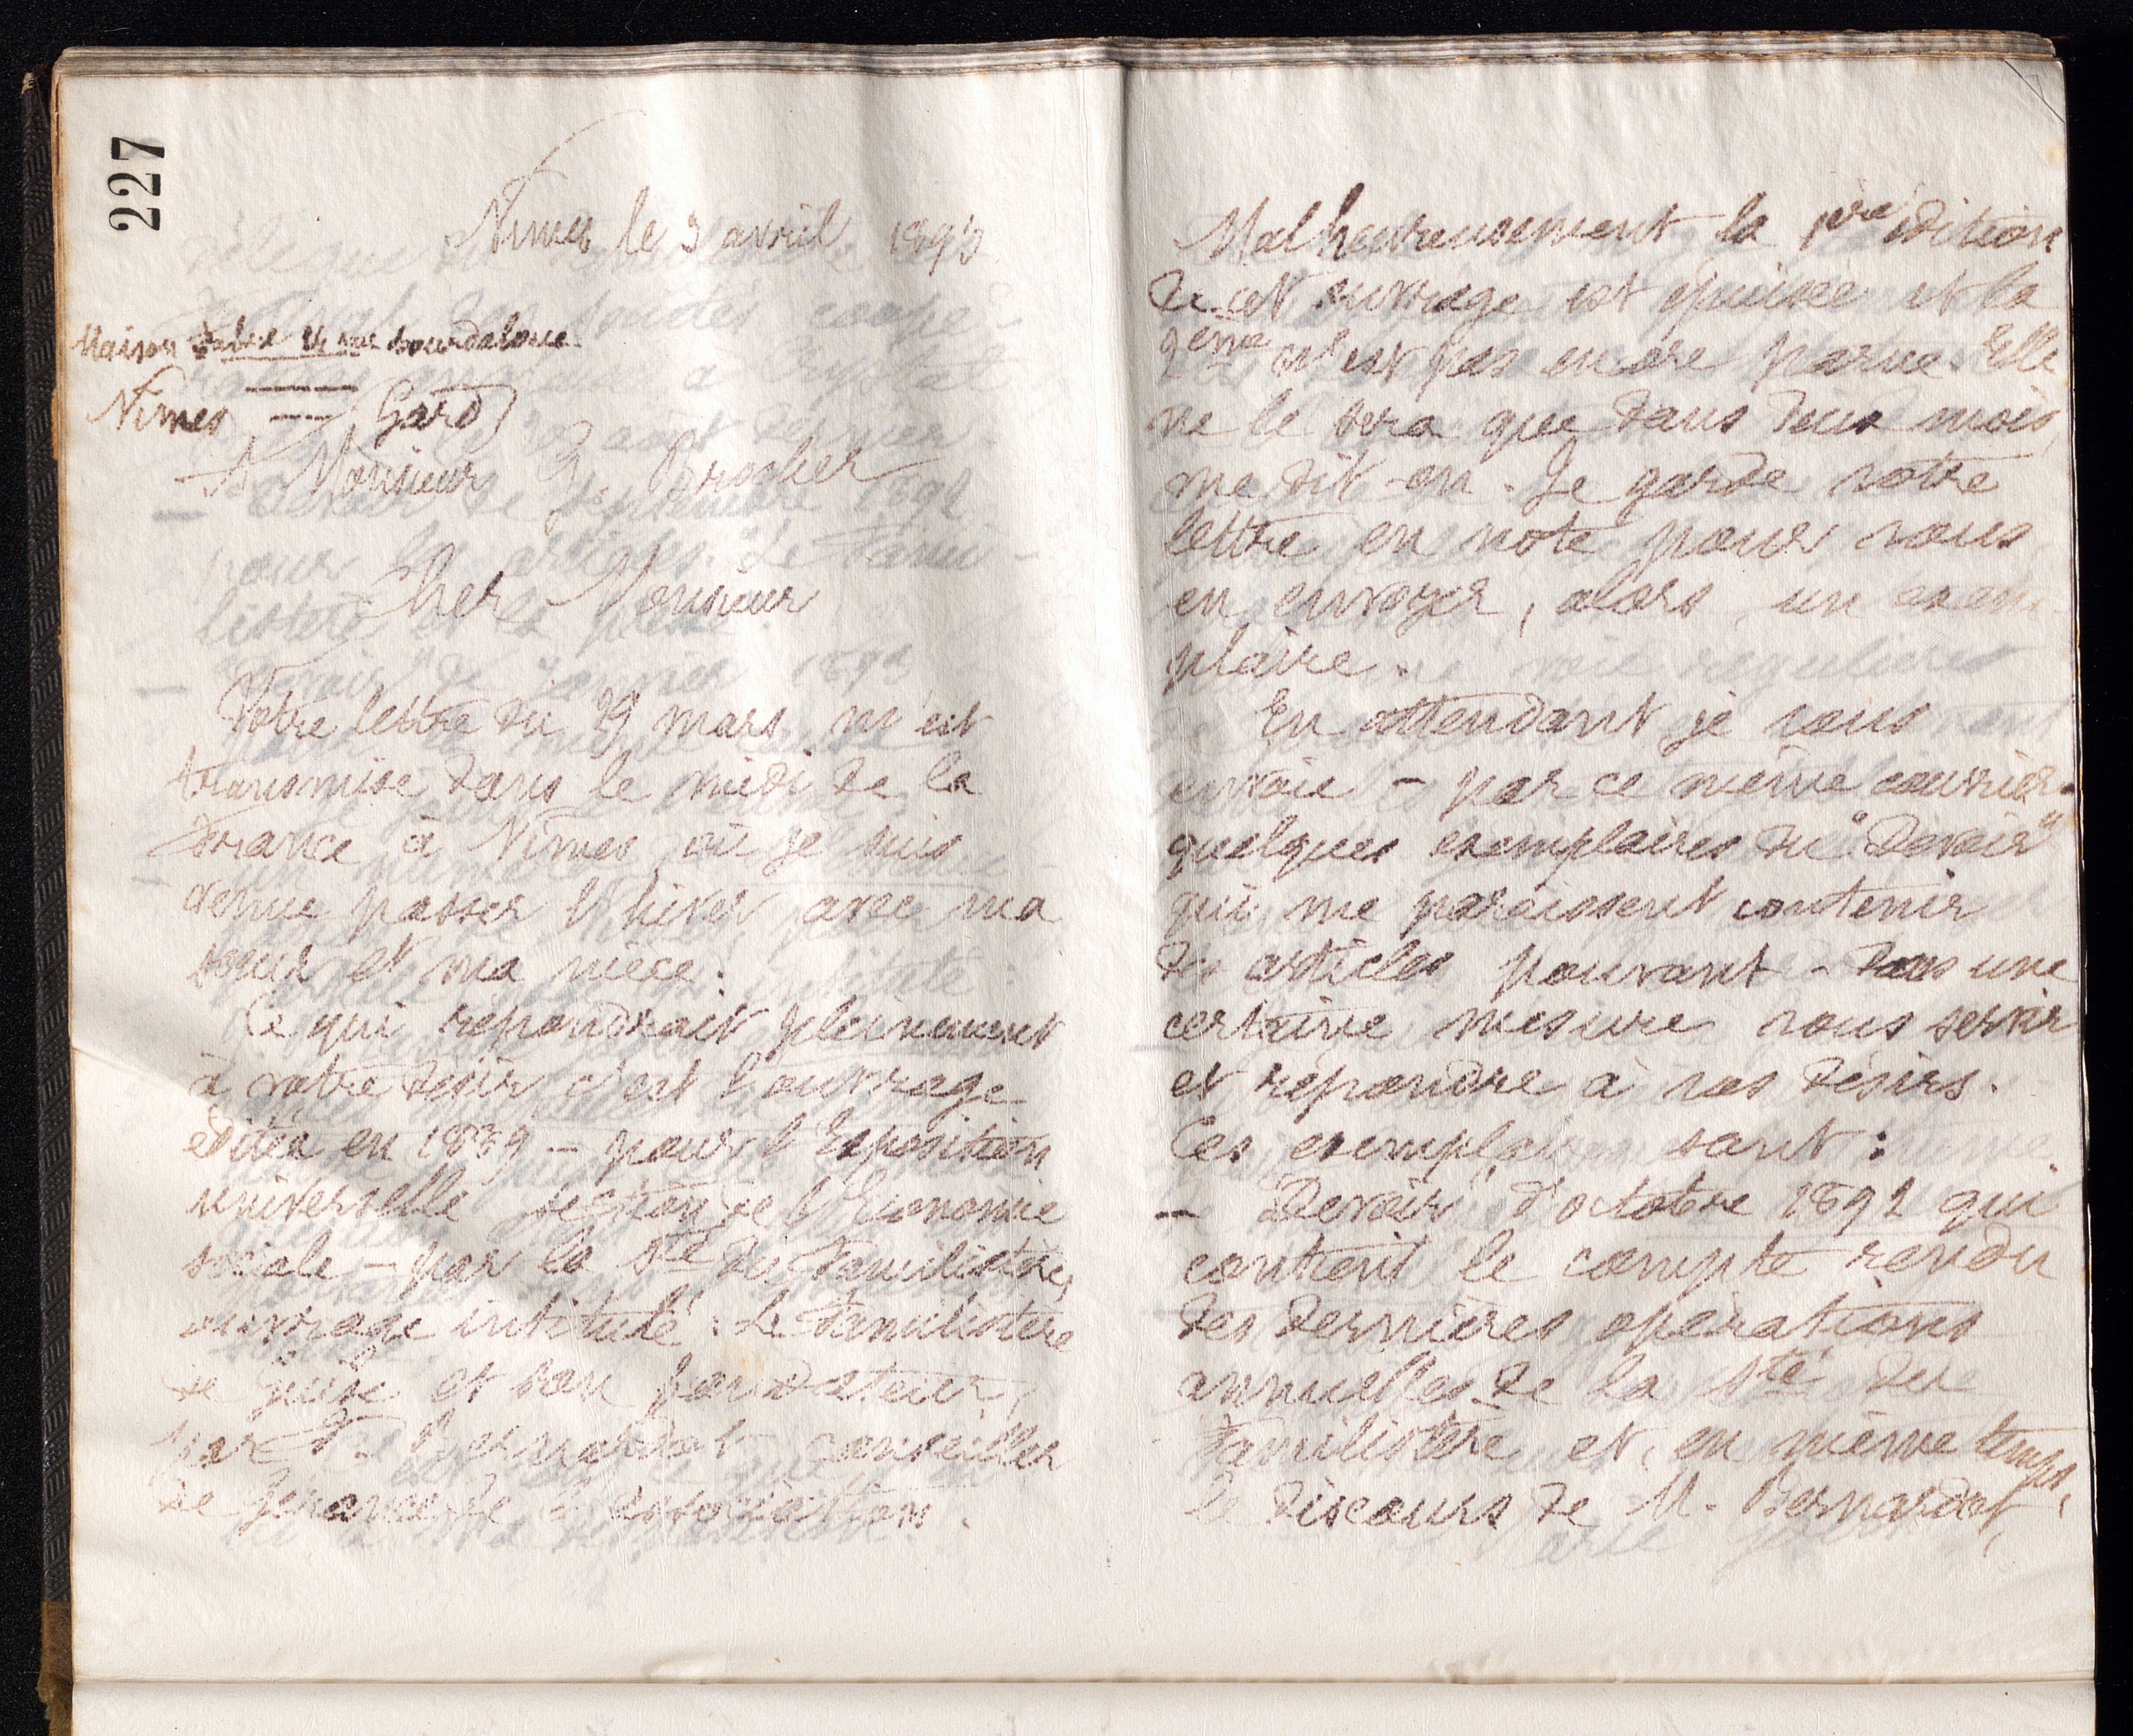 227
Nîmes le 3 avril 1893
Maison Fabre 14 rue Bourdaloue
Nîmes — (Gard)
A Monsieur G. Brocher
Cher Monsieur
Votre lettre du 29 mars m'est
transmise dans le midi de la
France à Nîmes où je suis
venue passer l'hiver avec ma
sœur et ma nièce.
Ce qui répondrait pleinement
à votre désir, c'est l'ouvrage
édité en 1889 – pour l'Exposition
universelle section de l'Economie
sociale – par la Sté du Familistère,
ouvrage intitulé : Le Familistère
de Guise et son fondateur,
par F. Bernardot conseiller
de Gérance de l'association.
Malheureusement la 1ère édition
de cet ouvrage est épuisée et la
2ème n'est pas encore parue. Elle
ne le sera que dans deux mois,
me dit-on. Je garde votre
lettre en note pour vous
en envoyer, alors, un exem-
plaire.
En attendant je vous
envoie – par ce même courrier –
quelques exemplaires du "Devoir"
qui me paraissent contenir
des articles pouvant – dans une
certaine mesure vous servir
et répondre à vos désirs.
Ces exemplaires sont :
– "Devoir" d'octobre 1892 qui
contient le compte rendu
des dernières opérations
annuelles de la Sté du
Familistère et, en même temps,
le discours de M. Bernardot,